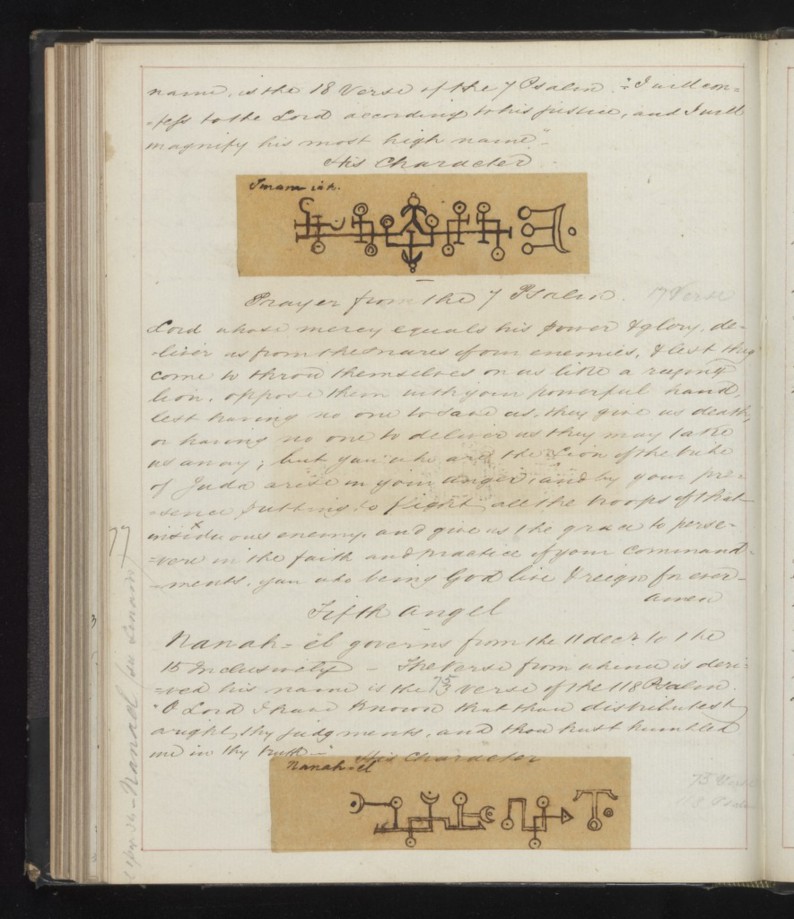 name, is the 18 Verse of the 7 Psalm. "I will con=
=fess to the Lord according to his justice, and I will
magnify his most high name".
His Character
Prayer from the 7 Psalm. 17 Verse
Lord whose mercy equals his power & glory, de=
=liver us from the snares of our enemies, & lest they
come to throw themselves on us like a raging
lion, oppose them with your powerful hand,
lest having no one to save us, they give us death,
or having no one to deliver us they may take
us away; but you who are the Lion of the tribe
of Juda arise in your anger, and by your pre=
=sence putting to flight all the troops of that
insidu ous enemy, and give us the grace to perse=
=vere in the faith and practice of your command=
=ments, you who being God live & reign for ever
amen
77
Fifth Angel
Nanah=el governs from the 11 decr to the
15 Inclusively - The Verse from whence is deri=
=ved his name is the 75 verse of the 118 Psalm.
"O Lord I have known that thou distributest
aright, thy judgments, and thou hast humbled
me in thy truth -
His Character
Nanah-el
75 Verse
118 Psalm